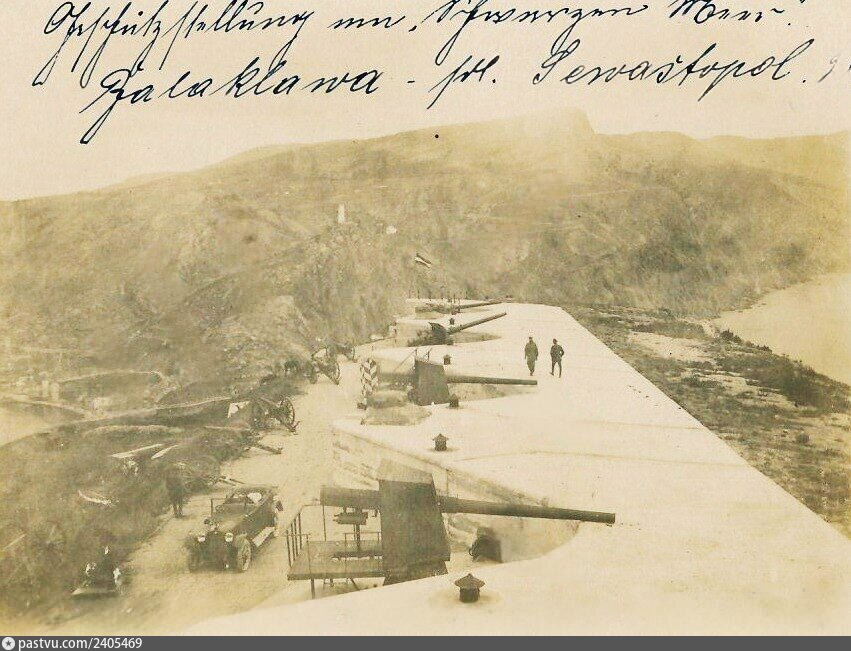 Geschützstellung am „Schwarzen Meer“.
Balaklawa - sdl. Sewastopol.
pastvu.com/2405469